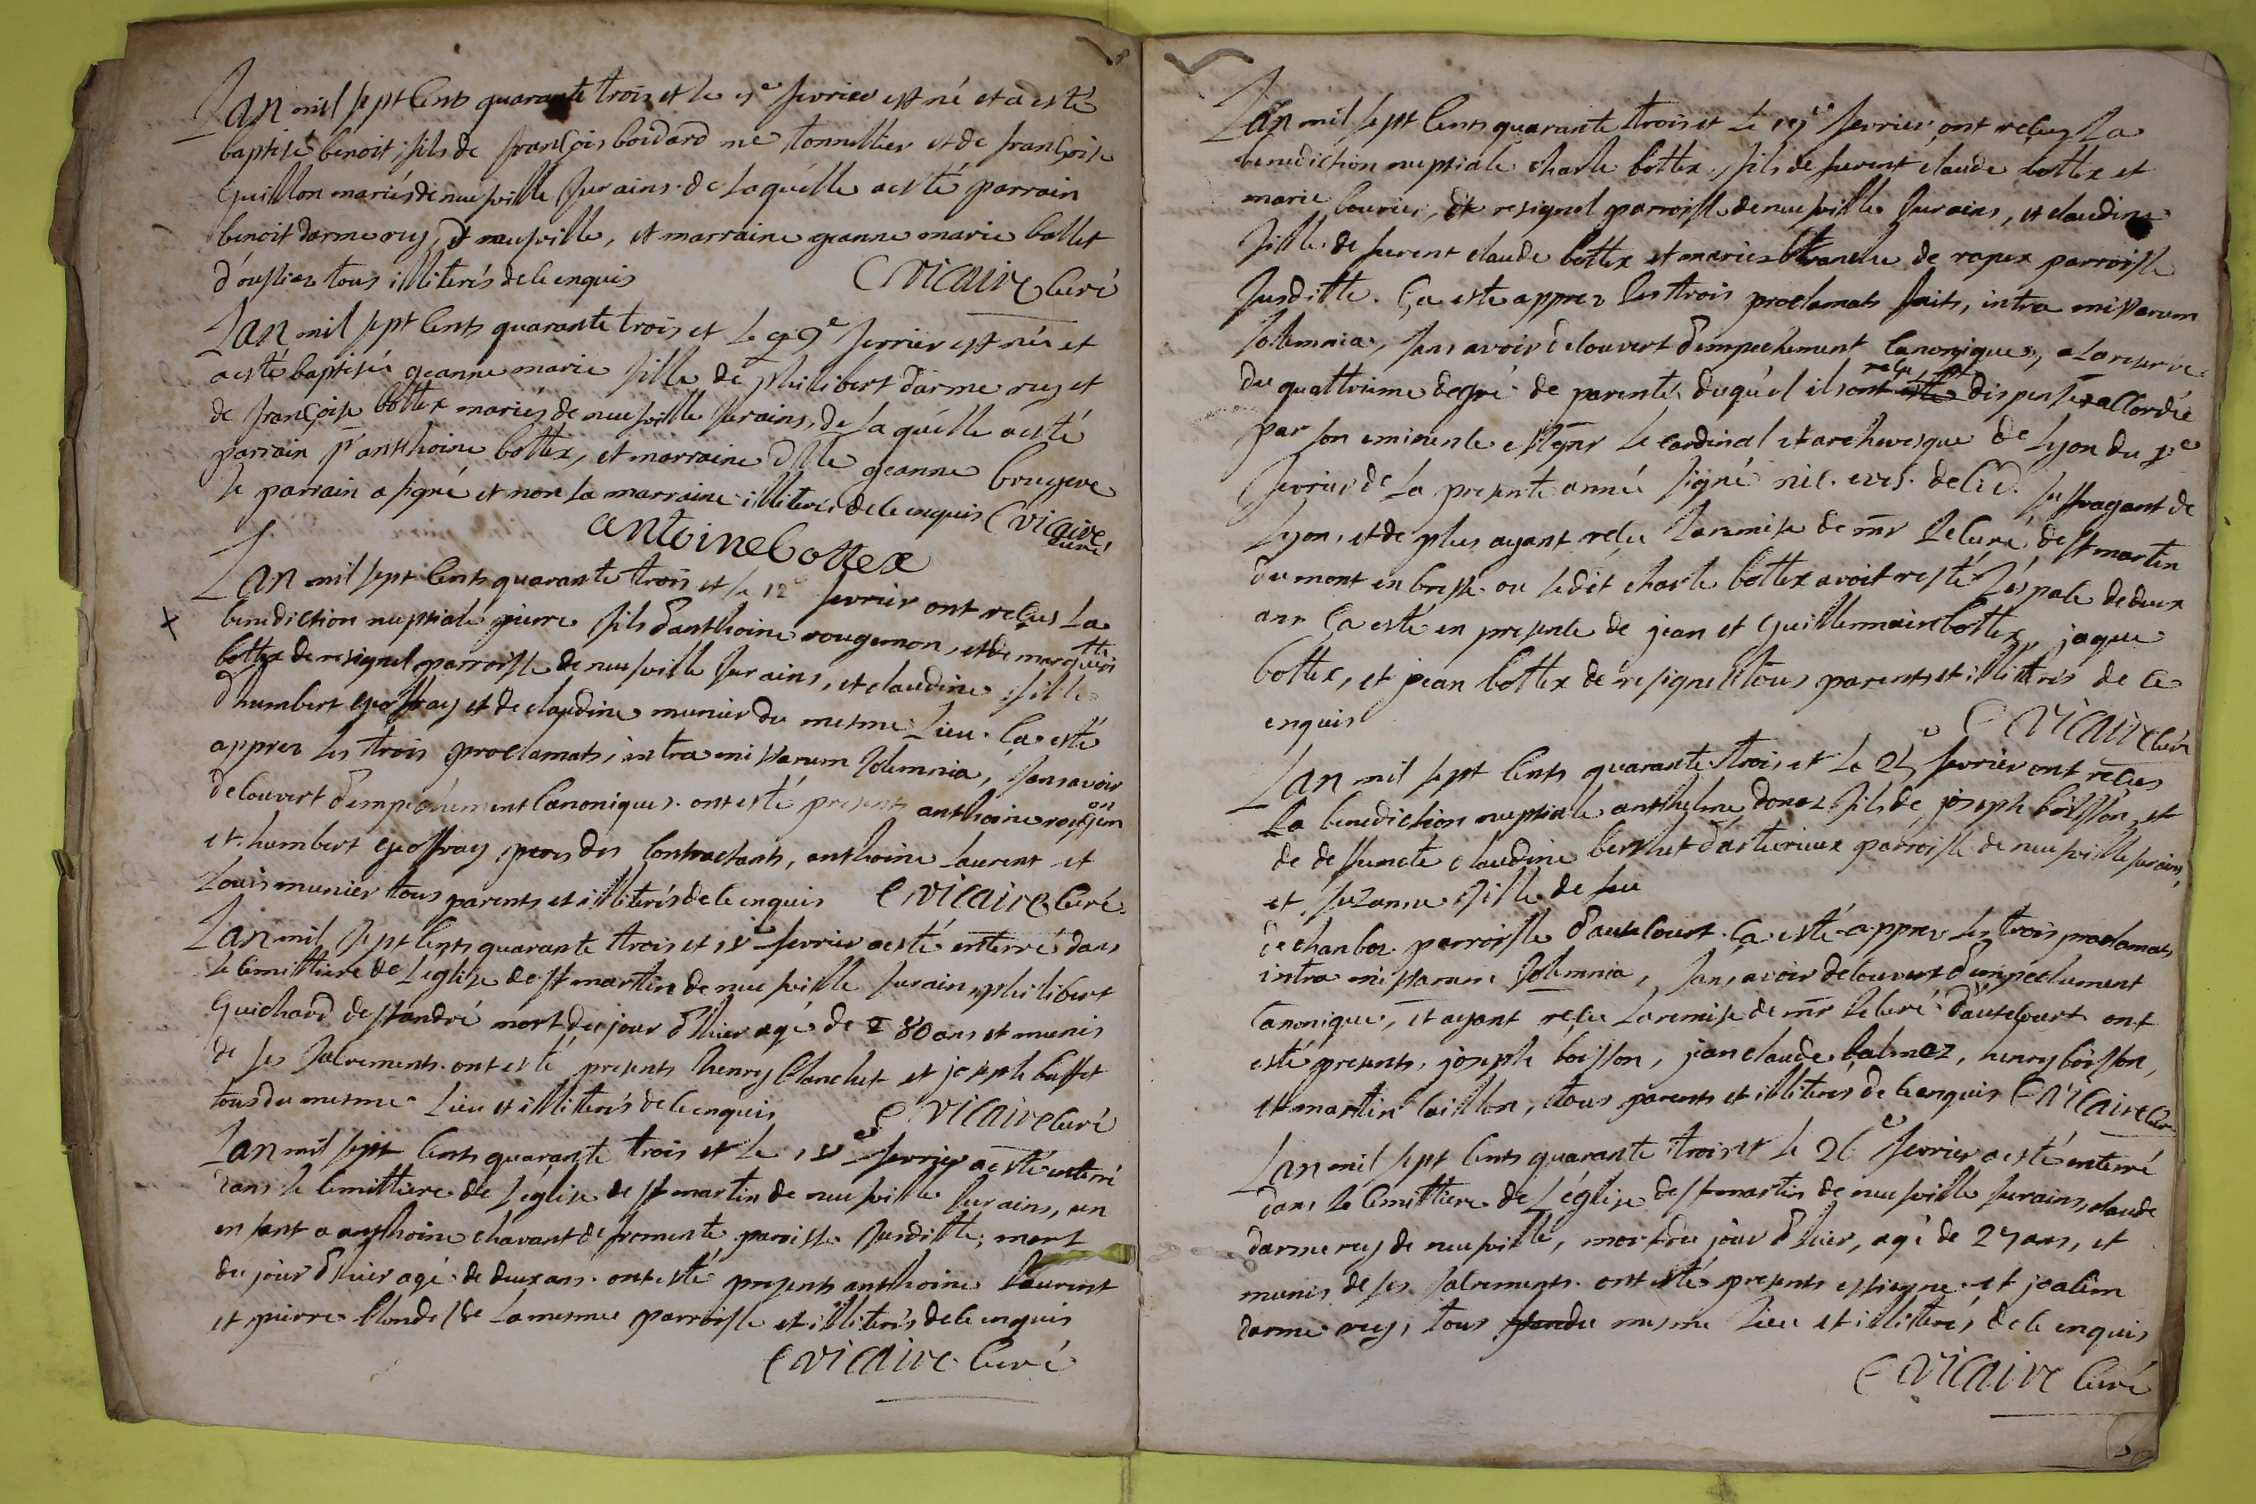 Lan mil sept Cents quarante trois et le 5e fevrier est né et a esté
baptisé benoit fils de françois boidard me tonnellier et de françoise
Guillon mariés de neufville sur ains. de laquélle a esté parrain
benoit darmerey d neufville, et marraine geanne marie bollet
d'oussiaz tous illiterés de ce enquis C Vicaire Curé
Lan mil sept Cents quarante trois et Le 9e fevrier est née et
a esté baptisée geanne marie fille de philibert darmerey et
de françoise bottex mariés de neufville sur ains, de laquélle a esté
parrain sr anthoine bottex, et marraine dlle geanne bruyere
le parrain a signé et non la marraine illiterée de ce enquis C Vicaire
curé
antoine bottex
Lan mil sept Cents quarante trois et le 12e fevrier ont reçus La
benediction nuptiale pierre fils d'anthoine rougemon, et de margueri
tte
bottex de resignel parroisse de neufville sur ains, et claudine fille
d'humbert geoffray et de claudine munier du mesme Lieu. Ça esté
apprez les trois proclamats, intra missarum solemnia, sans avoir
decouvert d'empechement Canonique. ont esté presents anthoine rougem
on
et humbert geoffray peres des Contractants, anthoine Laurent et
Louis munier tous parents et illiterés de ce enquis C Vicaire Curé
Lan mil sept Cents quarante trois et 18e fevrier a esté enterré dans
le Cimittiere de L'eglise de st martin de neufville sur ains, philibert
Guichard de st andré mort du jour d'hier agé de 80 ans et munis
de ses sacrements. ont esté presents henry blanchet et joseph buffet
tous du mesme Lieu et illiterés de ce enquis C Vicaire Curé
Lan mil sept Cents quarante trois et Le 18e fevrier a esté enterré
dans le Cimittiere de L'église de st martin de neufville sur ains, un
enfant a anthoine chavant de fromente paroisse susditte, mort
du jour d'hier agé de deux ans. ont esté presents anthoine Laurent
et pierre blondel de La mesme parroisse et illiterés de ce enquis
C Vicaire Curé
Lan mil sept Cents quarante trois et Le 19e fevrier ont reçus La
benediction nuptiale charle bottex, fils de furent claude bottex et
marie Courier, de resignel parroisse de neufville sur ains, et claudine
fille de furent claude bottex et marie blanche de rapex parroisse
susditte. Ça esté apprez les trois proclamats faits, intra missarum
solemnia, sans avoir decouvert d'empechement Canonique, a La reserve
du quattrieme degré de parenté duquél ils ont esté dispense accordée
reçu
par son eminence et sgnr Le cardinal et archevesque de Lyon du 1e
fevrier de La presente année signé nic. eves. de suffragant de
Lyon, et de plus ayant reçu La remise de mr Le Curé de st martin
du mont en bresse ou ledit charle bottex avoit resté L'espace de deux
ans Ça esté en presence de jean et Guillermain bottex, jaque
bottex, et jean bottex de resignel tous parents et illitterés de Ce
enquis C Vicaire Curé
Lan mil sept Cents quarante trois et Le 25e fevrier ont reçus
La benediction nuptiale anthelme donaz fils de joseph boisson, et
de deffuncte claudine berthet d'arterieux parroisse de neufville sur ains,
et suzanne fille de feu
de chanboz parroisse d'autecourt. Ça esté apprez les trois proclamats
intra missarum solemnia, sans avoir decouvert d'empechement
Canonique, et ayant reçu La remise de mr Le Curé d'autecourt ont
esté presents, joseph boisson, jean claude balmaz, henry boisson,
et martin Caillon, tous parents et illiterés de Ce enquis C Vicaire Curé
Lan mil sept Cents quarante trois et le 26e fevrier a esté enterré
dans le Cimittiere de L'église de st martin de neufville sur ains, claude
darmerey de neufville, mort du jour d'hier, agé de 27 ans, et
munis de ses sacrements. ont esté presents estienne et joacim
darmerey, tous du mesme Lieu et illiterés de Ce enquis
C Vicaire Curé